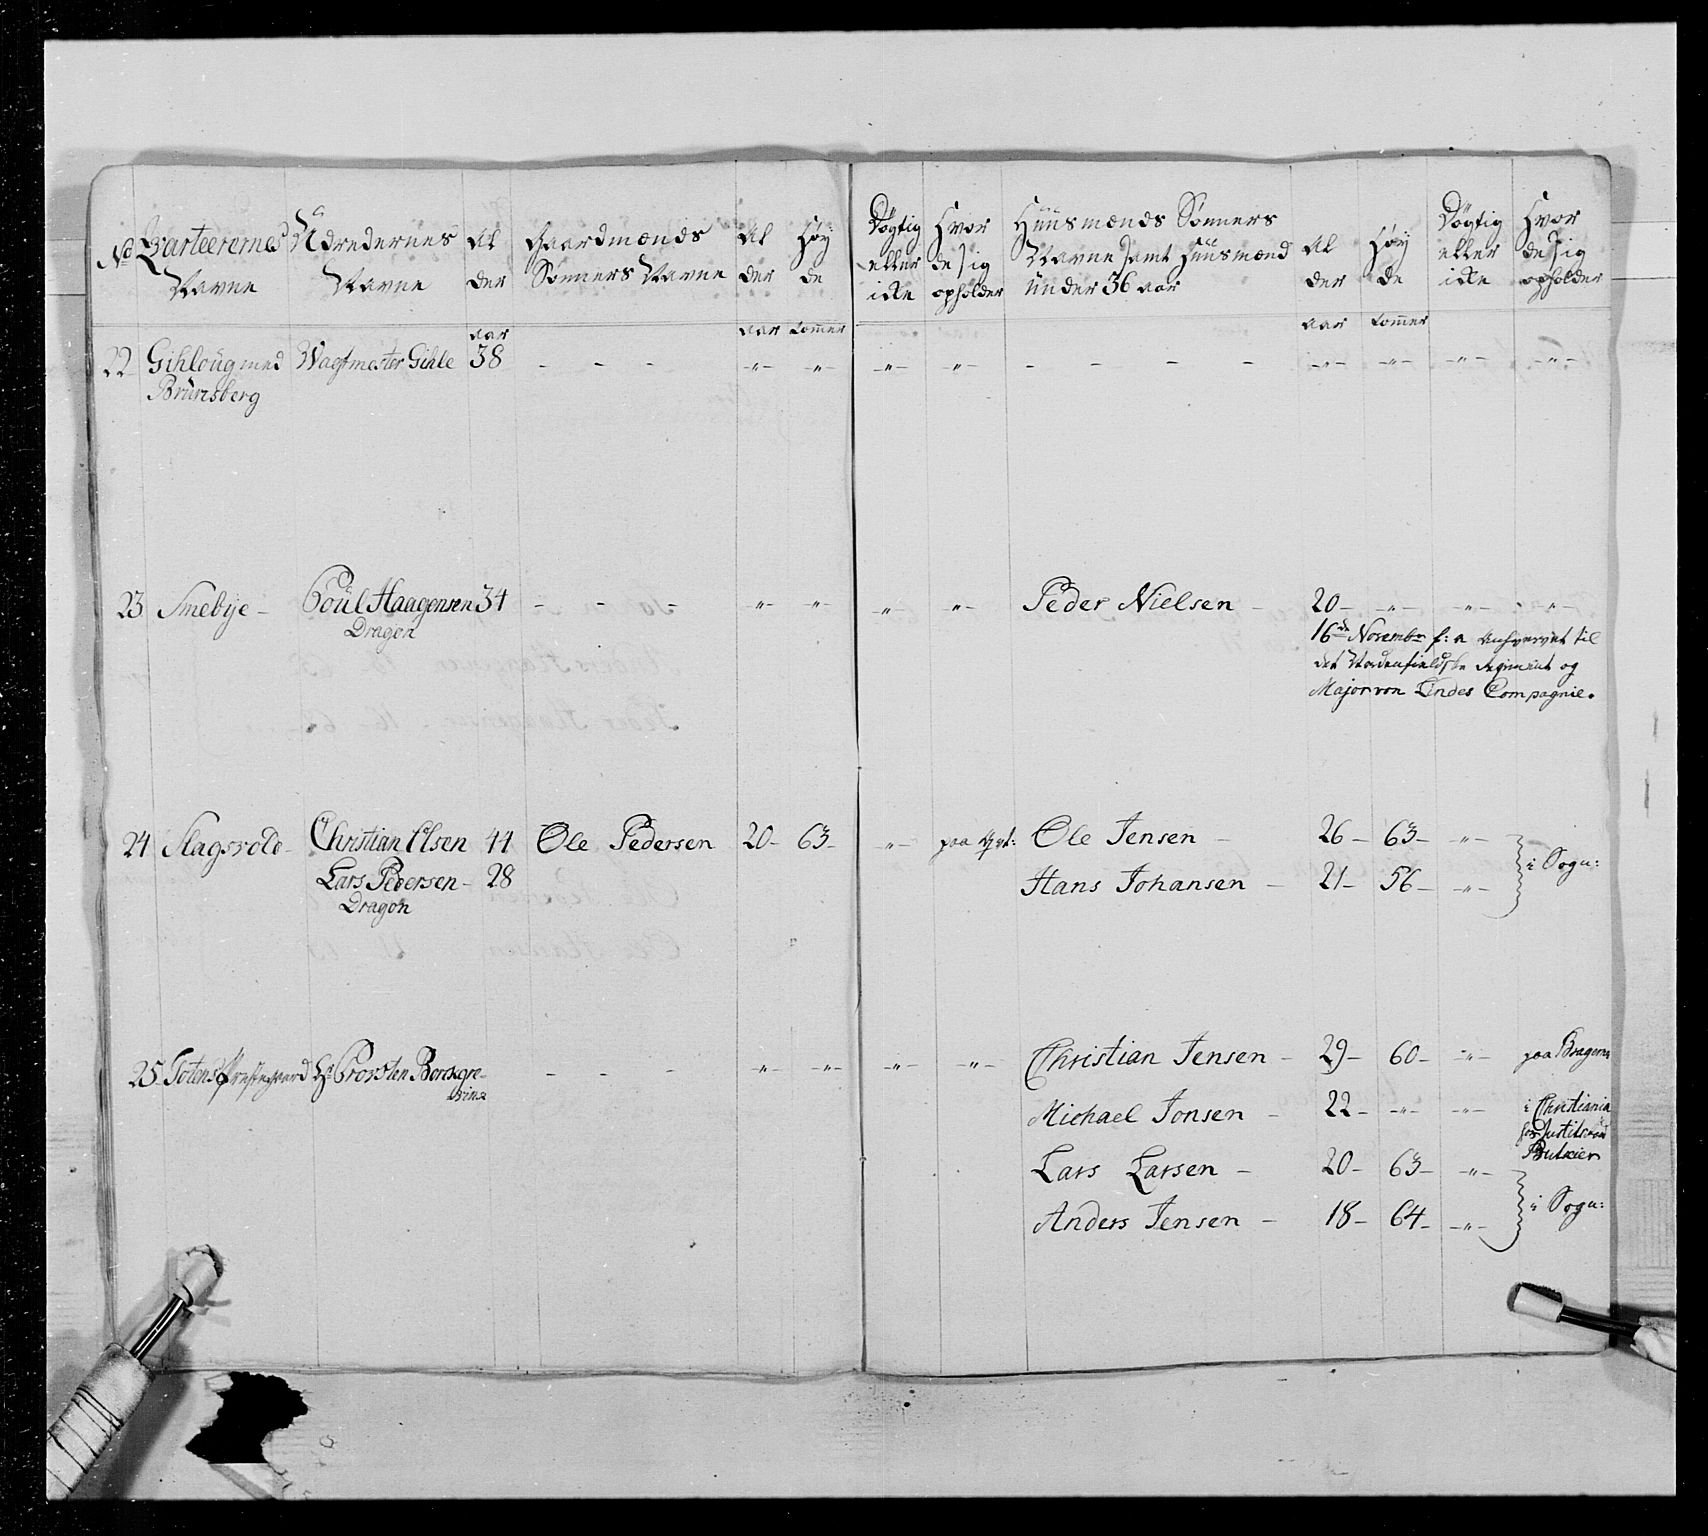 No Qvarteerernes Navne | Udredernes Navne | Alder | Gaardmænds Sønners Navne | Alder | Høyde | Døgtig eller ikke | Hvor de sig opholder | Huusmænds Sønners Navne samt Huusmænd under 36 aar | Alder | Høyde | Døgtig eller ikke | Hvor de sig opholder
aar | aar | tommer | aar | tommer
22 Gihle og med Wagtmester Gihle 38 - - - -"- -"- -"- -"- - - - - -"- -"- -"- -"-
Brurisberg
23 Smebye - Poul Haagensen 34 - - - -"- -"- -"- -"- Peder Nielsen - 20 - -"- -"- -"-
Dragon
16de Novembr f: a anhvervet til
det Nordenfieldske Regiment og
Major von Lindes Compagnie.
24 Slagsvold - Christian Olsen 44 Ole Pedersen 20 - 63 - -"- paa Qvt: Ole Jensen - 26 - 63 - -"- i Sogn:
Lars Pedersen - 28 Hans Johansen - 21 - 56 - -"-
Dragon
25 Totens Præstegaard Hr Provsten Borchgrevink - - - -"- -"- -"- -"- Christian Jensen - 29 - 60 - -"- paa Bragernes
Michael Jonsen - 22 - -"- -"- i Christiania
hos Justitsraad
Lars Larsen - 20 - 63 - -"- i Sogn:
Anders Jensen - 18 - 64 - -"-